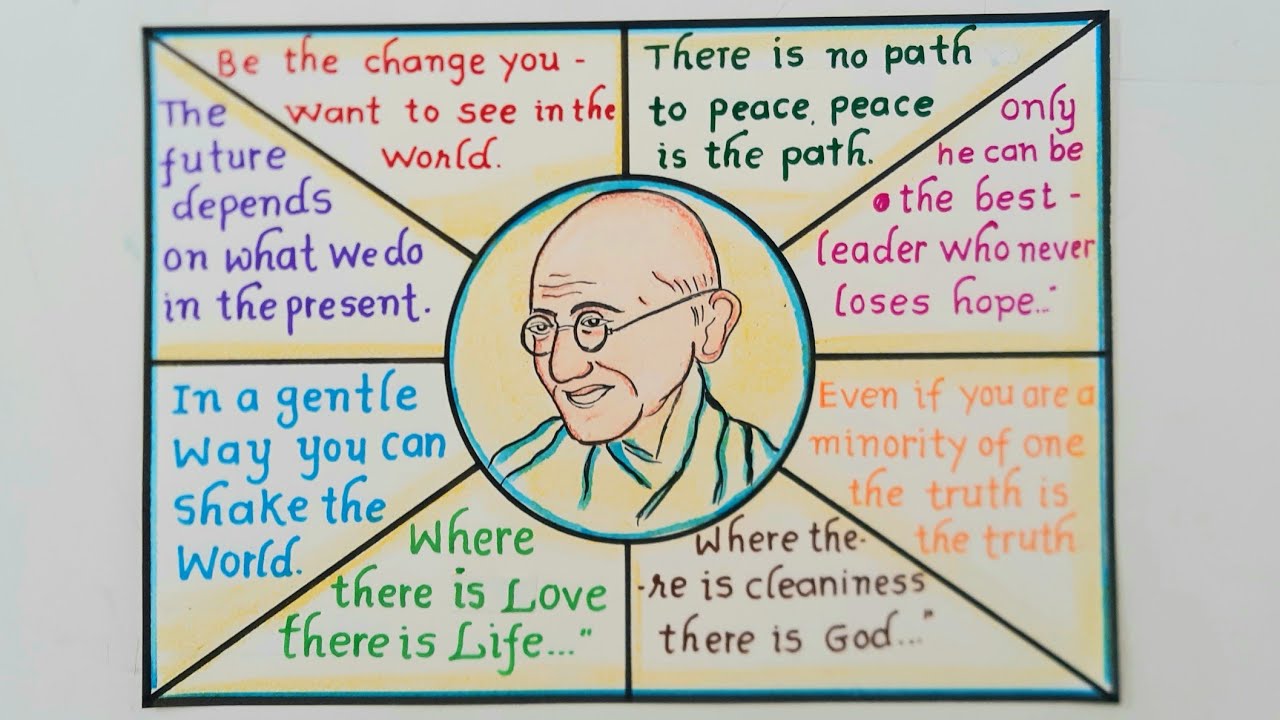 Be the change you -
want to see in the
world.
There is no path
to peace, peace
is the path.
only
he can be
the best -
leader who never
loses hope..."
Even if you are a
minority of one
the truth is
the truth
Where the-
-re is cleaniness
there is God..."
Where
there is Love
there is Life..."
In a gentle
way you can
shake the
World.
The
future
depends
on what we do
in the present.